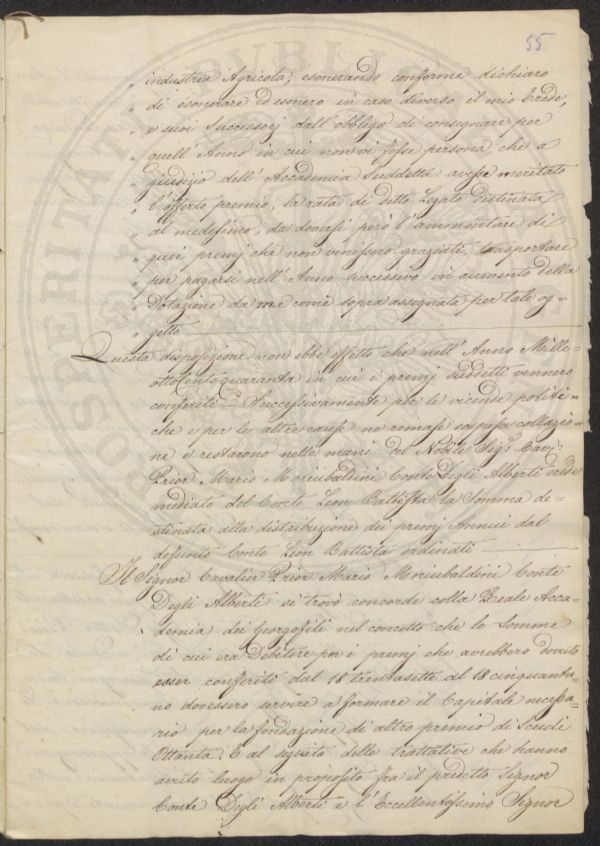 55
„ industria Agricola; esonerando conforme dichiaro
„ di esonerare ed esonero in caso diverso il mio Erede,
„ o suoi Successorj dall'obbligo di consegnare per
„ quell'Anno in cui non vi fosse persona che a
„ giudizio dell'Accademia suddetta avesse meritato
„ l'offerto premio, la rata di detto Legato destinata
„ al medesimo, da doversi però l'ammontare di
„ quei premj che non venissero graziati, trasportare
„ per pagarsi nell'Anno successivo in aumento della
„ Dotazione da me come sopra assegnata per tale og-
„ getto
Questa disposizione non ebbe effetto che nell'Anno Mille-
ottocentoquaranta in cui i premj suddetti vennero
conferiti = Successivamente per le vicende politi-
che e per le altre cause ne rimase sospesa collazio-
ne e restarono nelle mani del Nobile Sigr. Cavj:
Prior Mario Moriubaldini Conte Degli Alberti erede
mediato del Conte Leon Battista la Somma de-
stinata alla distribuzione dei premj Annui dal
defunto Conte Leon Battista ordinati
Il Signor Cavalier Prior Mario Moriubaldini Conte
Degli Alberti si trovò concorde colla Reale Acca-
demia dei Georgofili nel concetto che le Somme
di cui era Debitore per i premj che avrebbero dovuto
esser conferiti dal 18 trentasette al 18 cinquantu-
no dovessero servire a formare il Capitale necessa-
rio per la fondazione di altro premio di Scudi
Ottanta. E al seguito delle trattative che hanno
avuto luogo in proposito fra il predetto Signor
Conte Degli Alberti e l'Eccellentissimo Signor
PROSPERITATI PUBLICAE